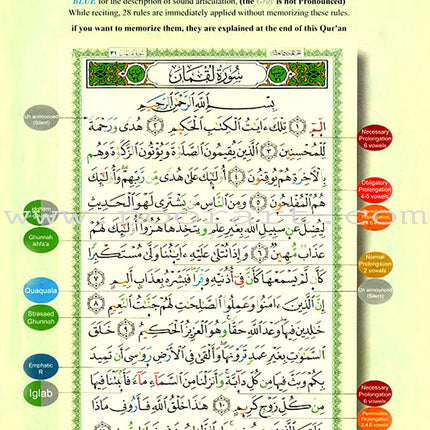 BLUE for the description of sound articulation, (the Gray is not Pronounced)
While reciting, 28 rules are immediately applied without memorizing these rules.
if you want to memorize them, they are explained at the end of this Qur'an
سُورَةُ لُقْمَانَ
بِسْمِ اللَّهِ الرَّحْمَٰنِ الرَّحِيمِ
الٓمٓ ١ تِلْكَ ءَايَٰتُ الْكِتَٰبِ الْحَكِيمِ ٢ هُدًى وَرَحْمَةً
لِّلْمُحْسِنِينَ ٣ الَّذِينَ يُقِيمُونَ الصَّلَوٰةَ وَيُؤْتُونَ الزَّكَوٰةَ وَهُم
بِالْءَاخِرَةِ هُمْ يُوقِنُونَ ٤ أُوْلَٰٓئِكَ عَلَىٰ هُدًى مِّن رَّبِّهِمْ وَأُوْلَٰٓئِكَ
هُمُ الْمُفْلِحُونَ ٥ وَمِنَ النَّاسِ مَن يَشْتَرِى لَهْوَ الْحَدِيثِ
لِيُضِلَّ عَن سَبِيلِ اللَّهِ بِغَيْرِ عِلْمٍ وَيَتَّخِذَهَا هُزُوًا أُوْلَٰٓئِكَ لَهُمْ
عَذَابٌ مُّهِينٌ ٦ وَإِذَا تُتْلَىٰ عَلَيْهِ ءَايَٰتُنَا وَلَّىٰ مُسْتَكْبِرًا
كَأَن لَّمْ يَسْمَعْهَا كَأَنَّ فِىٓ أُذُنَيْهِ وَقْرًا فَبَشِّرْهُ بِعَذَابٍ أَلِيمٍ ٧
إِنَّ الَّذِينَ ءَامَنُوا۟ وَعَمِلُوا۟ الصَّٰلِحَٰتِ لَهُمْ جَنَّٰتُ النَّعِيمِ ٨
خَٰلِدِينَ فِيهَا وَعْدَ اللَّهِ حَقًّا وَهُوَ الْعَزِيزُ الْحَكِيمُ ٩ خَلَقَ
السَّمَٰوَٰتِ بِغَيْرِ عَمَدٍ تَرَوْنَهَا وَأَلْقَىٰ فِى الْأَرْضِ رَوَٰسِىَ أَن تَمِيدَ
بِكُمْ وَبَثَّ فِيهَا مِن كُلِّ دَآبَّةٍ وَأَنزَلْنَا مِنَ السَّمَآءِ مَآءً فَأَنۢبَتْنَا فِيهَا
مِن كُلِّ زَوْجٍ كَرِيمٍ ١٠ هَٰذَا خَلْقُ اللَّهِ فَأَرُونِى مَاذَا
Un announced
(Silent)
Idghem
Ghunnah
ikhfa'a
Quaquala
Stressed
Ghunnah
Emphatic
R
Iglab
Necessary
Prolongation
6 vowels
Obligatory
Prolongation
4-5 vowels
Normal
Prolongation
2 vowels
Un announced
(Silent)
Necessary
Prolongation
6 vowels
Permissible
Prolongation
2 4,6 vowels